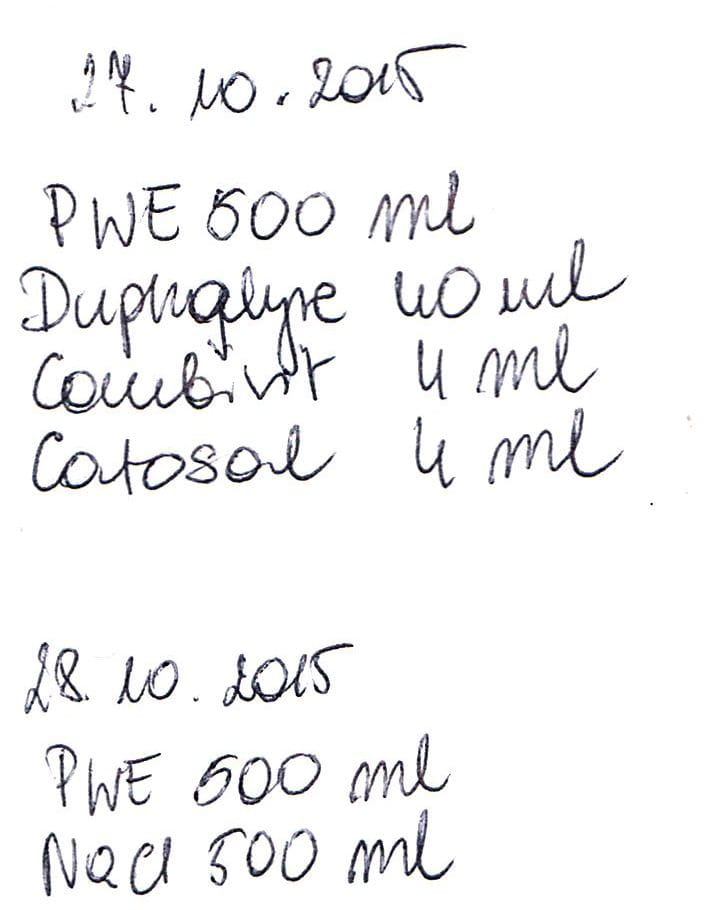 27.10.2015
PWE 500 ml
Duphalyte 40 ml
Combivit 4 ml
Catosal 4 ml
28.10.2015
PWE 500 ml
NaCl 500 ml